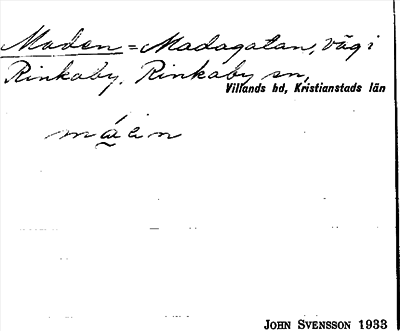 Maden = Madagatan, väg i
Rinkaby. Rinkaby sn,
Villands hd, Kristianstads län
máin
JOHN SVENSSON 1933